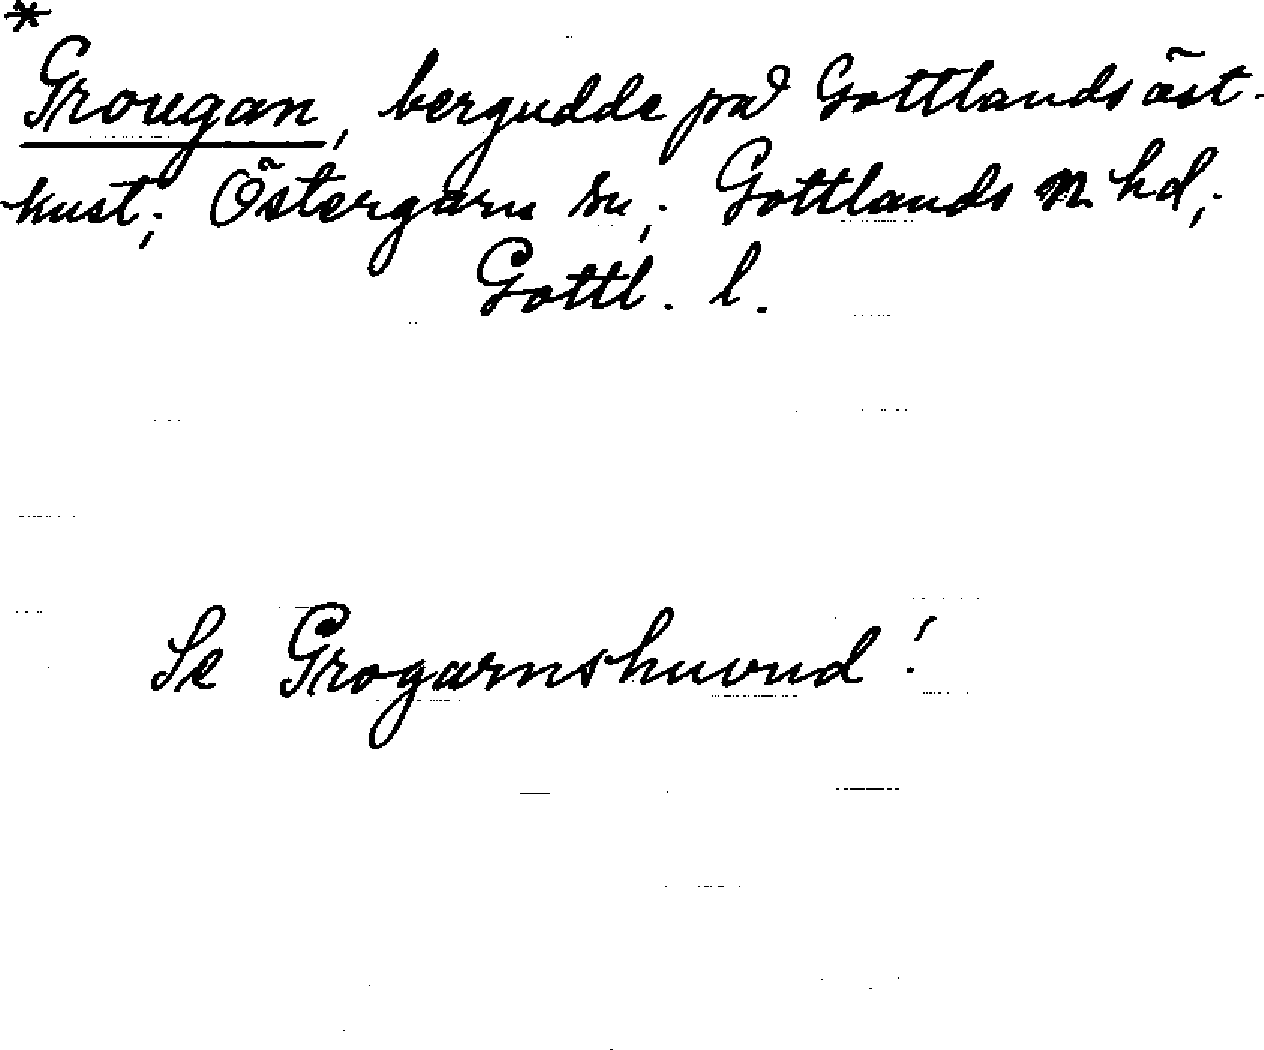 *
Grougan, bergudde på Gottlands öst-
kust; Östergarn sn; Gottlands n. hd;
Gottl. l.
Se Grogarnshuvud!